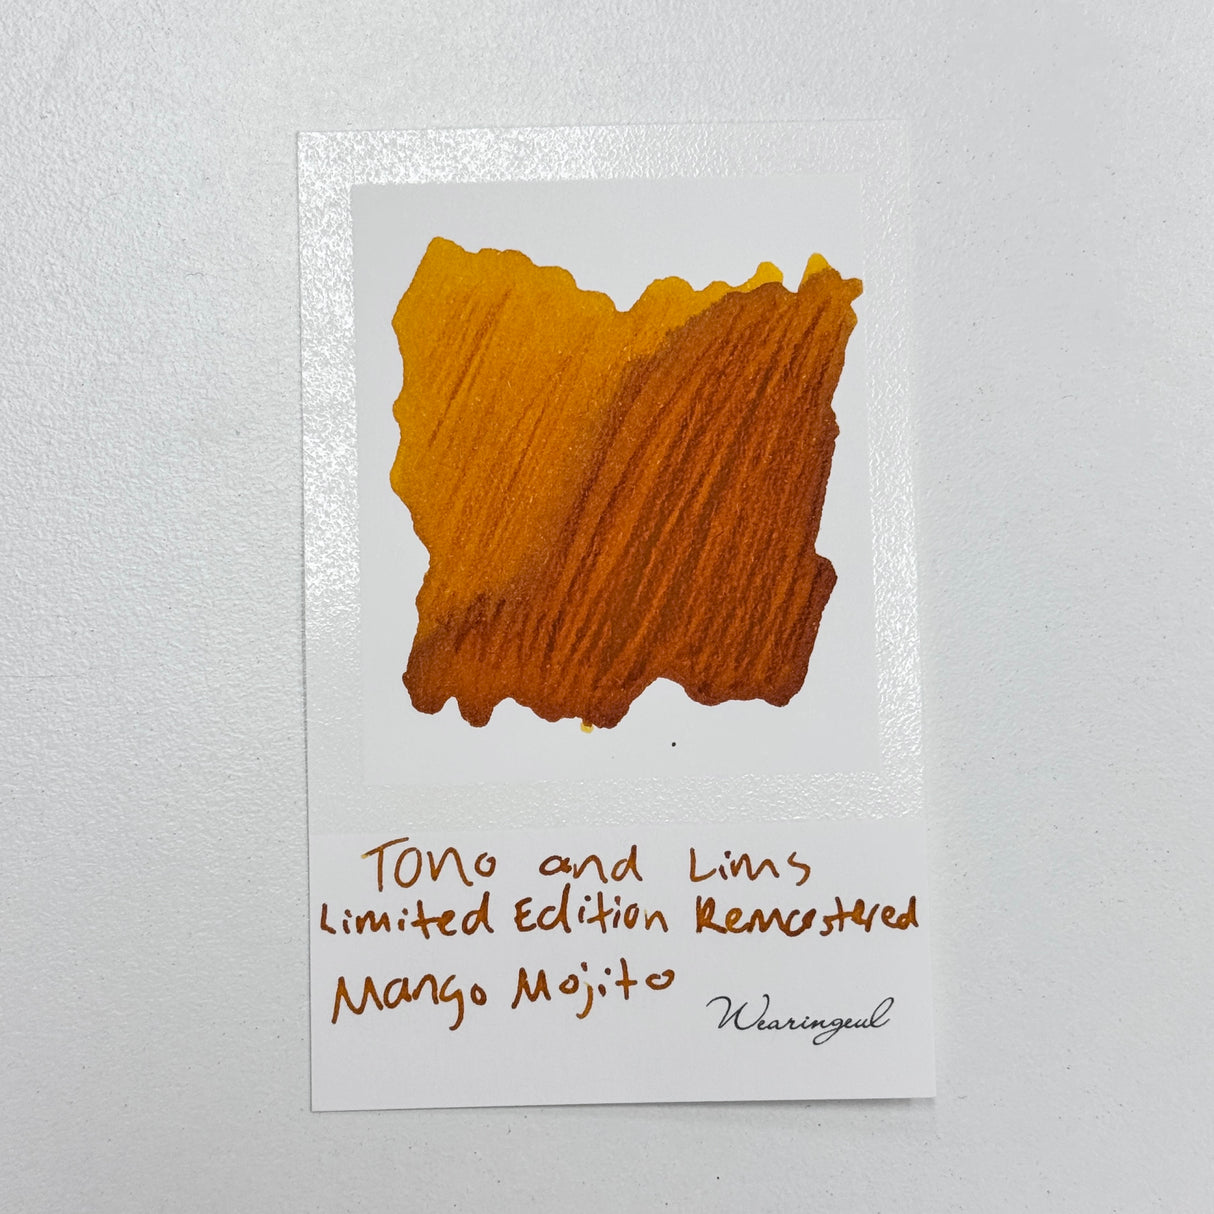 Tono and Lims
Limited Edition Remastered
Mango Mojito
Wearingeul